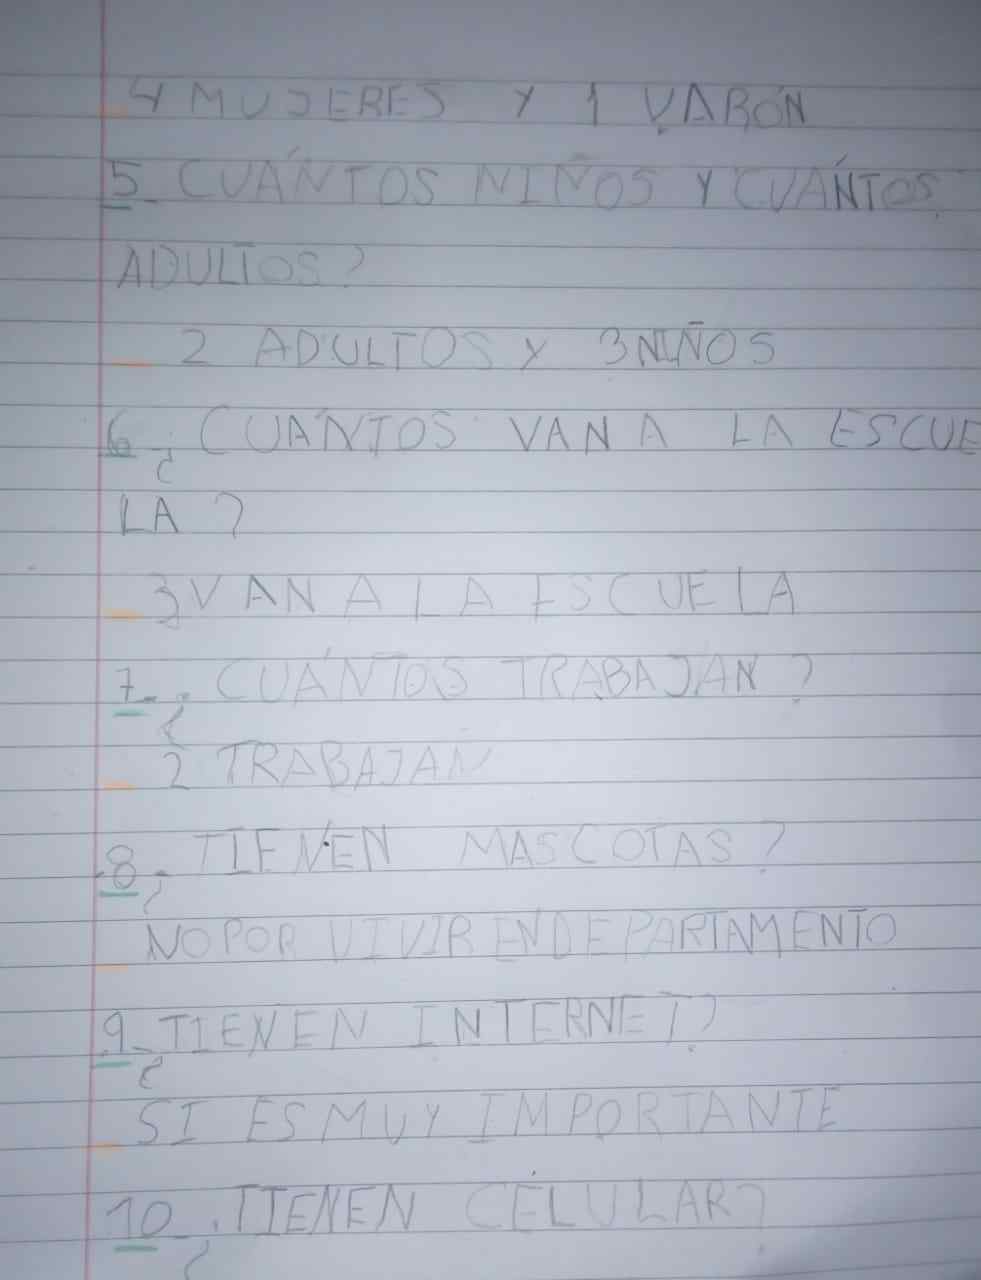 4 MUJERES Y 1 VARÓN
5- CUÁNTOS NIÑOS Y CUÁNTOS
ADULTOS?
2 ADULTOS Y 3 NIÑOS
6-¿ CUÁNTOS VAN A LA ESCUE
LA?
3 VAN A LA ESCUELA
7-¿ CUÁNTOS TRABAJAN?
2 TRABAJAN
8-¿ TIENEN MASCOTAS?
NO POR VIVIR EN DEPARTAMENTO
9-¿ TIENEN INTERNET?
SI ES MUY IMPORTANTE
10-¿ TIENEN CÉLULAR?